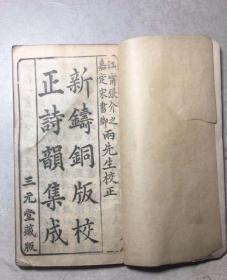 江甯張介之
嘉定宋書卿
兩先生校正
新鑄銅版校
正詩韻集成
三元堂藏版